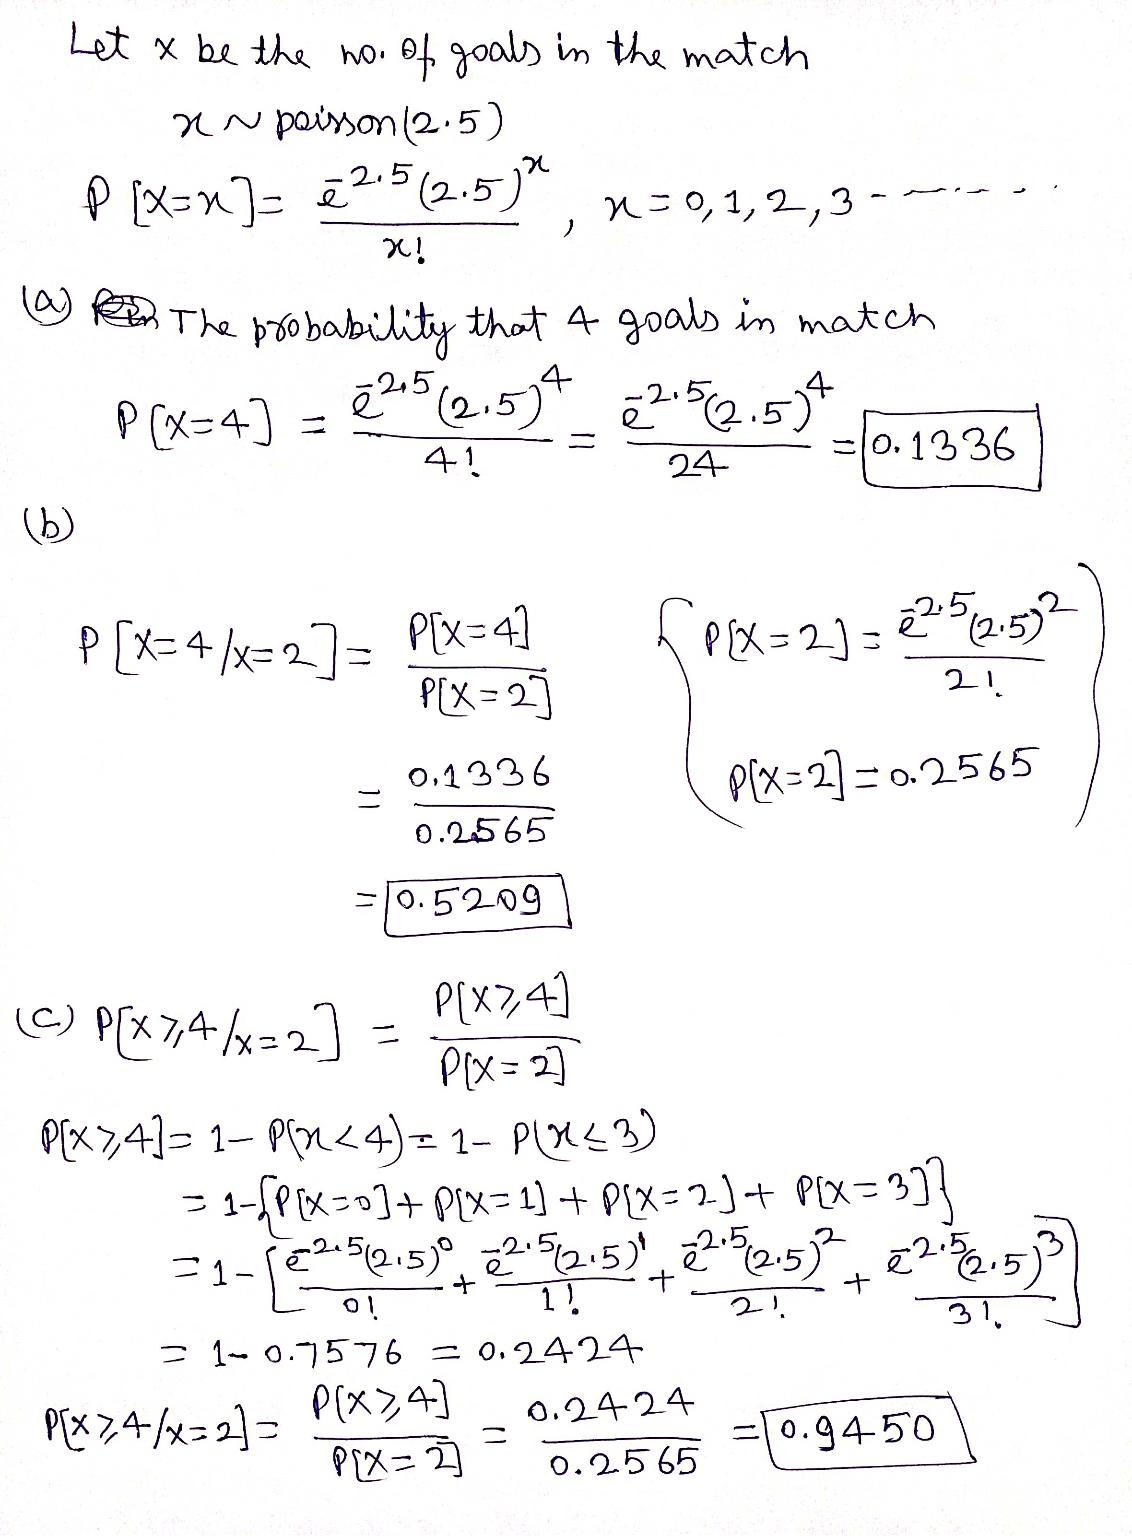 Let x be the no. of goals in the match
x ~ poisson(2.5)
P[X=x] = e^-2.5 (2.5)^x / x! , x = 0, 1, 2, 3 - - - - - -
(a) The probability that 4 goals in match
P[X=4] = e^-2.5 (2.5)^4 / 4! = e^-2.5 (2.5)^4 / 24 = 0.1336
(b)
P[X=4/x=2] = P[X=4] / P[X=2]
= 0.1336 / 0.2565
= 0.5209
{ P[X=2] = e^-2.5 (2.5)^2 / 2!
P[X=2] = 0.2565 )
(c) P[X≥4/x=2] = P[X≥4] / P[X=2]
P[X≥4] = 1- P(x<4) = 1- P(x≤3)
= 1-{P[X=0] + P[X=1] + P[X=2] + P[X=3]}
= 1-[e^-2.5 (2.5)^0 / 0! + e^-2.5 (2.5)^1 / 1! + e^-2.5 (2.5)^2 / 2! + e^-2.5 (2.5)^3 / 3!]
= 1- 0.7576 = 0.2424
P[X≥4/x=2] = P[X≥4] / P[X=2] = 0.2424 / 0.2565 = 0.9450